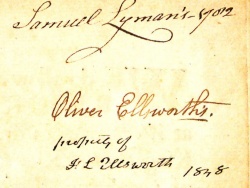 Samuel Lyman's — 1702
Oliver Ellsworth's.
property of
H L Ellsworth 1838